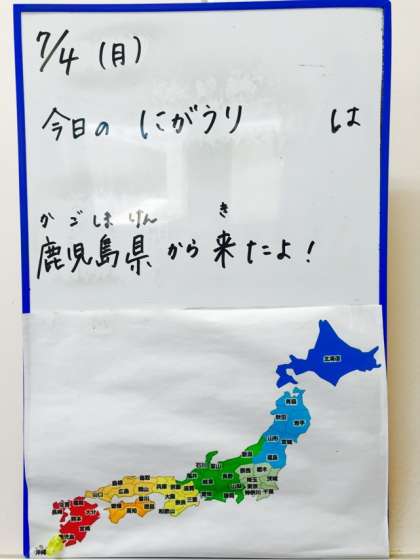 7/4 (月)
今日の にがうり は
かごしまけん き
鹿児島県から来たよ!
北海道
青森
秋田 岩手
山形 宮城
福島
新潟
石川 富山
福井 長野 群馬 栃木
岐阜 山梨 埼玉 茨城
愛知 静岡 東京 千葉
神奈川
島根 鳥取 兵庫 京都 滋賀
山口 広島 岡山 大阪 奈良 三重
香川 和歌山
愛媛 高知 徳島
佐賀 福岡
長崎 大分
熊本
宮崎
鹿児島
沖縄